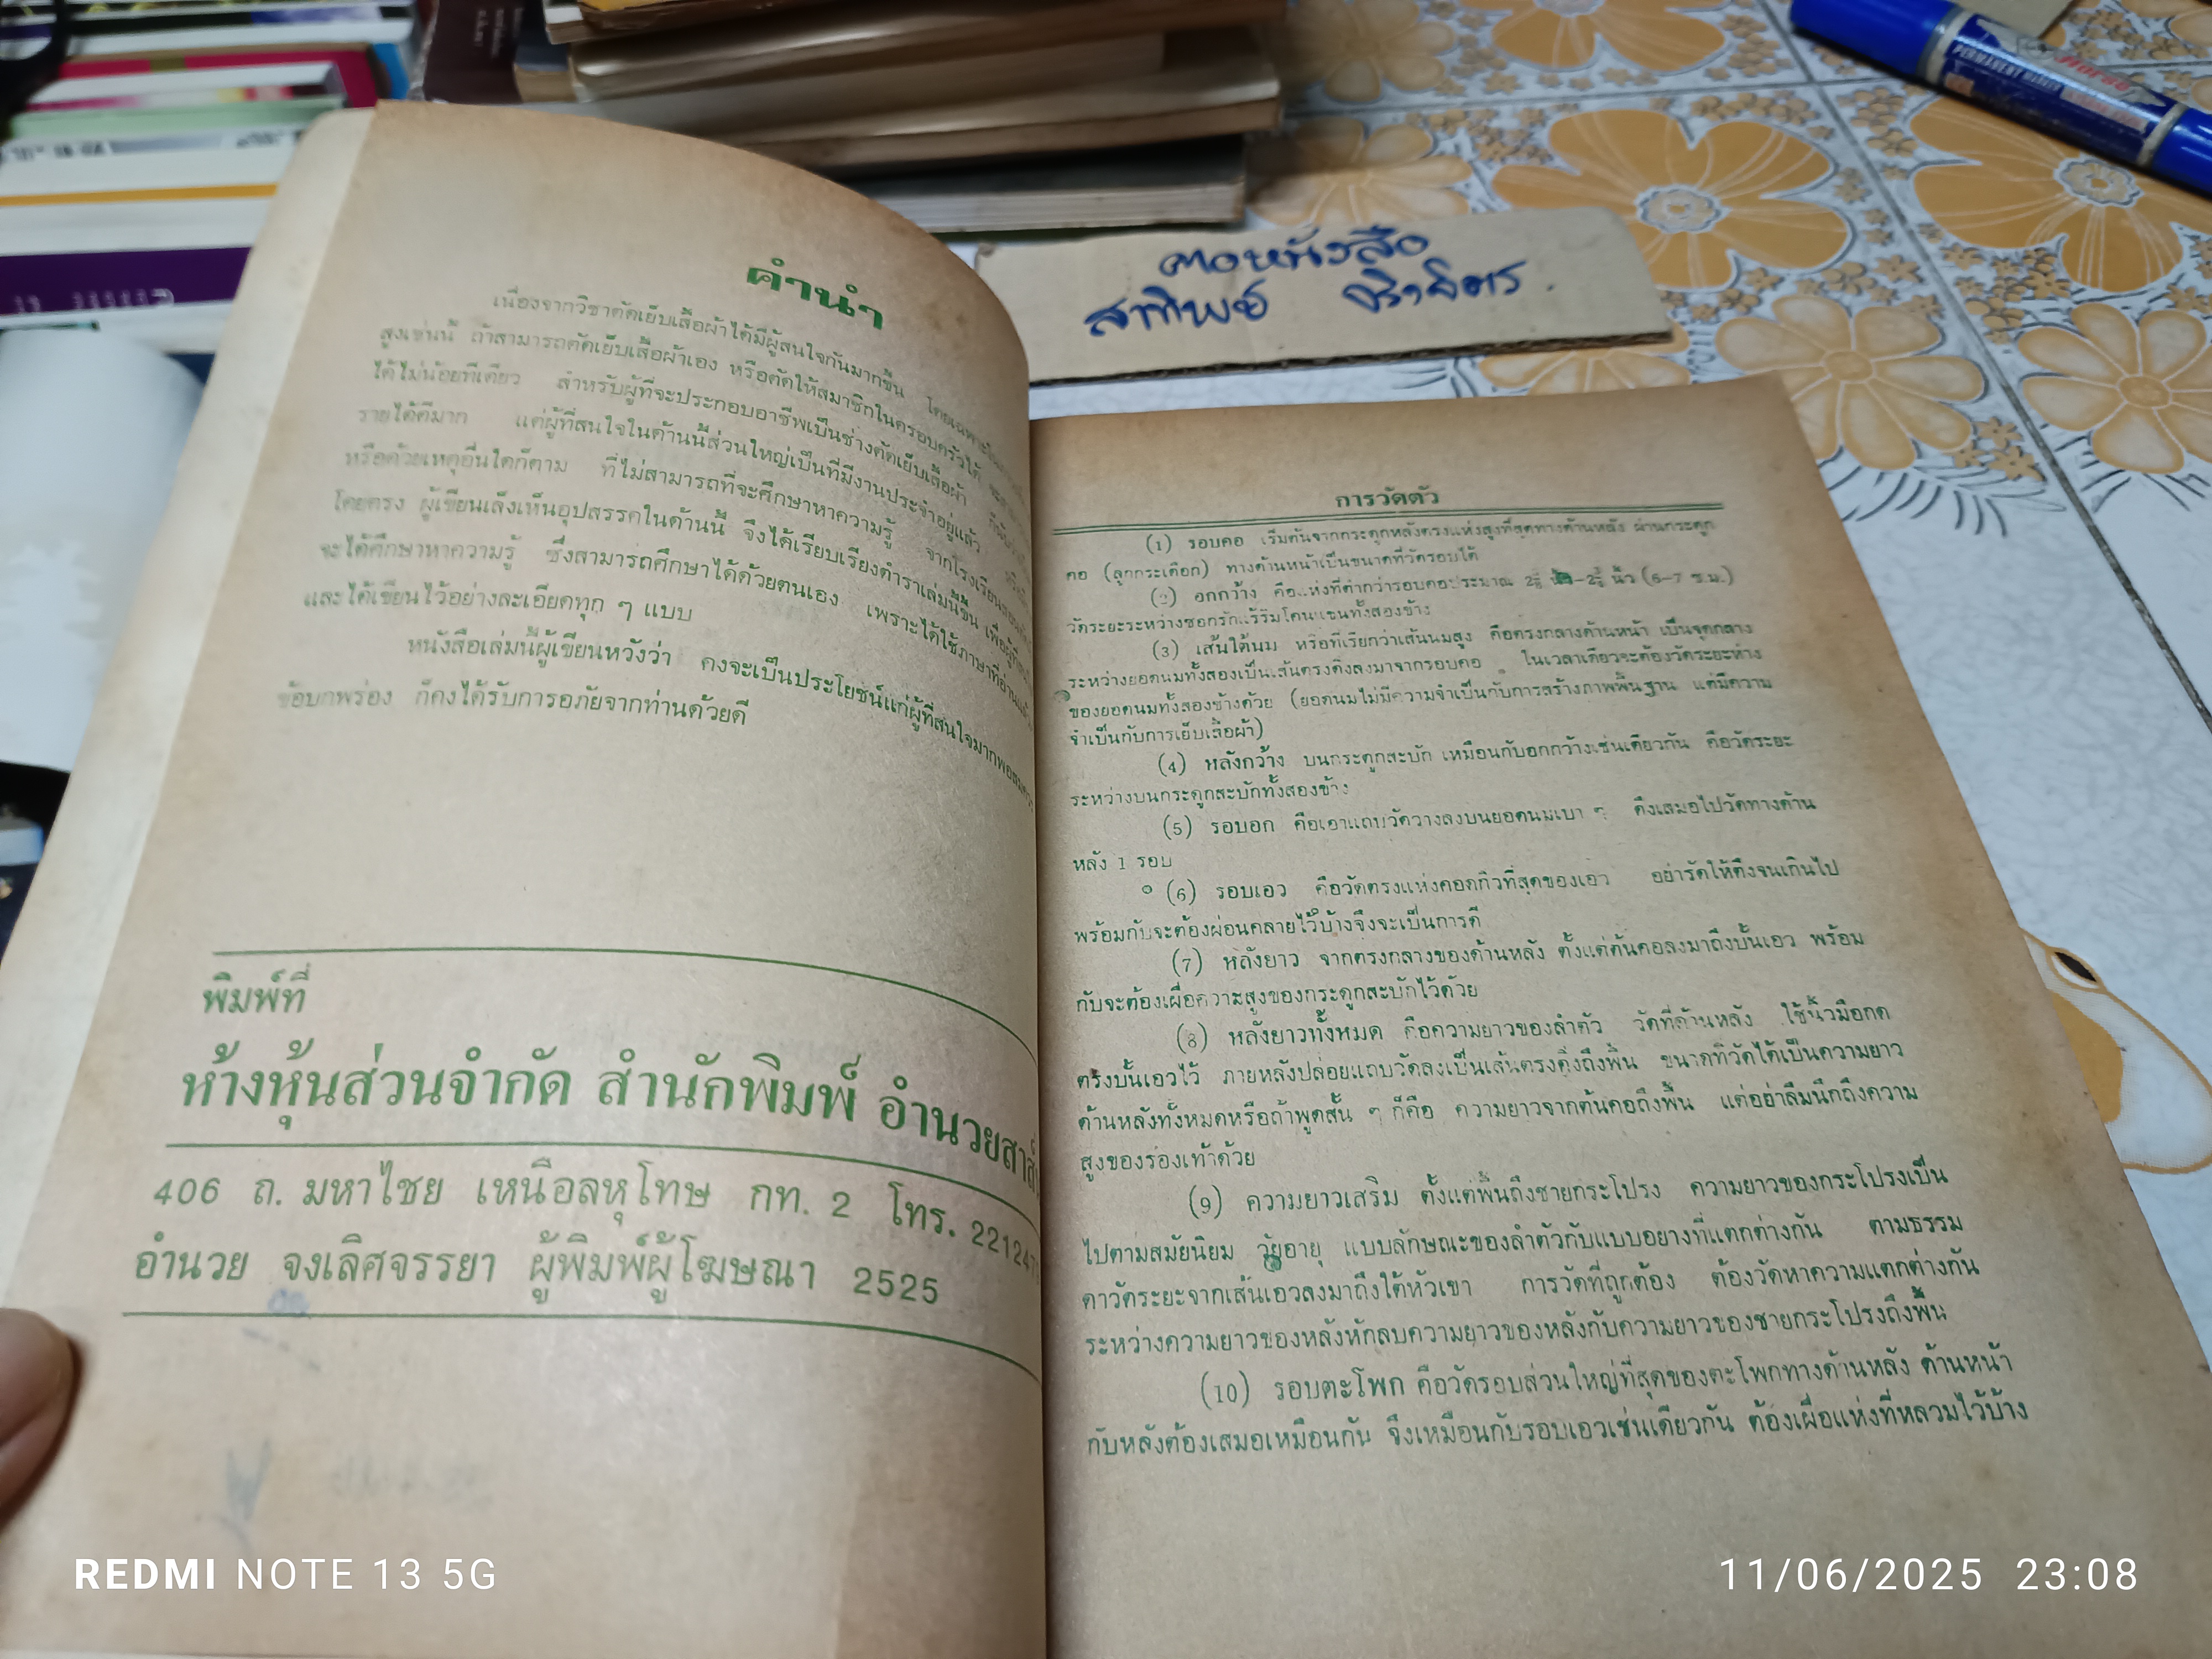 คำนำ
เนื่องจากวิชาตัดเย็บเสื้อผ้าได้มีผู้สนใจกันมากขึ้น โดยเฉพาะ
สูงเช่นนี้ ถ้าสามารถตัดเย็บเสื้อผ้าเอง หรือตัดให้สมาชิกในครอบครัวได้
ได้ไม่น้อยทีเดียว สำหรับผู้ที่จะประกอบอาชีพเป็นช่างตัดเย็บเสื้อผ้า
รายได้ดีมาก แต่ผู้ที่สนใจในด้านนี้ส่วนใหญ่เป็นที่มีงานประจำอยู่แล้ว
หรือด้วยเหตุอื่นใดก็ตาม ที่ไม่สามารถที่จะศึกษาหาความรู้ จากโรงเรียน
โดยตรง ผู้เขียนเล็งเห็นอุปสรรคในด้านนี้ จึงได้เรียบเรียงตำราเล่มนี้ขึ้น เพื่อผู้ที่
จะได้ศึกษาหาความรู้ ซึ่งสามารถศึกษาได้ด้วยตนเอง เพราะได้ใช้ภาษาที่อ่าน
และได้เขียนไว้อย่างละเอียดทุก ๆ แบบ
หนังสือเล่มนี้ผู้เขียนหวังว่า คงจะเป็นประโยชน์แก่ผู้ที่สนใจมากพอสมควร
ข้อบกพร่อง ก็คงได้รับการอภัยจากท่านด้วยดี
พิมพ์ที่
ห้างหุ้นส่วนจำกัด สำนักพิมพ์ อำนวยสาส์น
406 ถ. มหาไชย เหนือลหุโทษ กท. 2 โทร. 221247
อำนวย จงเลิศจรรยา ผู้พิมพ์ผู้โฆษณา 2525
การวัดตัว
(1) รอบคอ เริ่มต้นจากกระดูกหลังตรงแห่งสูงที่สุดทางด้านหลัง ผ่านกระดูก
คอ (ลูกกระเดือก) ทางด้านหน้าเป็นขนาดที่วัดรอบได้
(2) อกกว้าง คือแห่งที่ต่ำกว่ารอบคอประมาณ นิ้ว (6-7 ซ.ม.)
วัดระยะระหว่างซอกรักแร้ริมโคนแขนทั้งสองข้าง
(3) เส้นใต้นม หรือที่เรียกว่าเส้นนมสูง คือตรงกลางด้านหน้า เป็นจุดกลาง
ระหว่างยอดนมทั้งสองเป็นเส้นตรงดิ่งลงมาจากรอบคอ ในเวลาเดียวจะต้องวัดระยะห่าง
ของยอดนมทั้งสองข้างด้วย (ยอดนมไม่มีความจำเป็นกับการสร้างภาพพื้นฐาน แต่มีความ
จำเป็นกับการเย็บเสื้อผ้า)
(4) หลังกว้าง บนกระดูกสะบัก เหมือนกับอกกว้างเช่นเดียวกัน คือวัดระยะ
ระหว่างบนกระดูกสะบักทั้งสองข้าง
(5) รอบอก คือเอาแถบวัดวางลงบนยอดนมเบา ๆ ดึงเสมอไปวัดทางด้าน
หลัง 1 รอบ
(6) รอบเอว คือวัดตรงแห่งคอดกิ่วที่สุดของเอว อย่ารัดให้ตึงจนเกินไป
พร้อมกับจะต้องผ่อนคลายไว้บ้างจึงจะเป็นการดี
(7) หลังยาว จากตรงกลางของด้านหลัง ตั้งแต่ต้นคอลงมาถึงบั้นเอว พร้อม
กับจะต้องเผื่อความสูงของกระดูกสะบักไว้ด้วย
(8) หลังยาวทั้งหมด คือความยาวของลำตัว วัดที่ด้านหลัง ใช้นิ้วมือกด
ตรงบั้นเอวไว้ ภายหลังปล่อยแถบวัดลงเป็นเส้นตรงดิ่งถึงพื้น ขนาดที่วัดได้เป็นความยาว
ด้านหลังทั้งหมดหรือถ้าพูดสั้น ๆ ก็คือ ความยาวจากต้นคอถึงพื้น แต่อย่าลืมนึกถึงความ
สูงของรองเท้าด้วย
(9) ความยาวเสริม ตั้งแต่พื้นถึงชายกระโปรง ความยาวของกระโปรงเป็น
ไปตามสมัยนิยม วัยอายุ แบบลักษณะของลำตัวกับแบบอย่างที่แตกต่างกัน ตามธรรม
ดาวัดระยะจากเส้นเอวลงมาถึงใต้หัวเขา การวัดที่ถูกต้อง ต้องวัดหาความแตกต่างกัน
ระหว่างความยาวของหลังหักลบความยาวของหลังกับความยาวของชายกระโปรงถึงพื้น
(10) รอบตะโพก คือวัดรอบส่วนใหญ่ที่สุดของตะโพกทางด้านหลัง ด้านหน้า
กับหลังต้องเสมอเหมือนกัน จึงเหมือนกับรอบเอวเช่นเดียวกัน ต้องเผื่อแห่งที่หลวมไว้บ้าง
คอหนังสือ
สาทิพย์
PERMANENT MARKER
REDMI NOTE 13 5G
11/06/2025 23:08